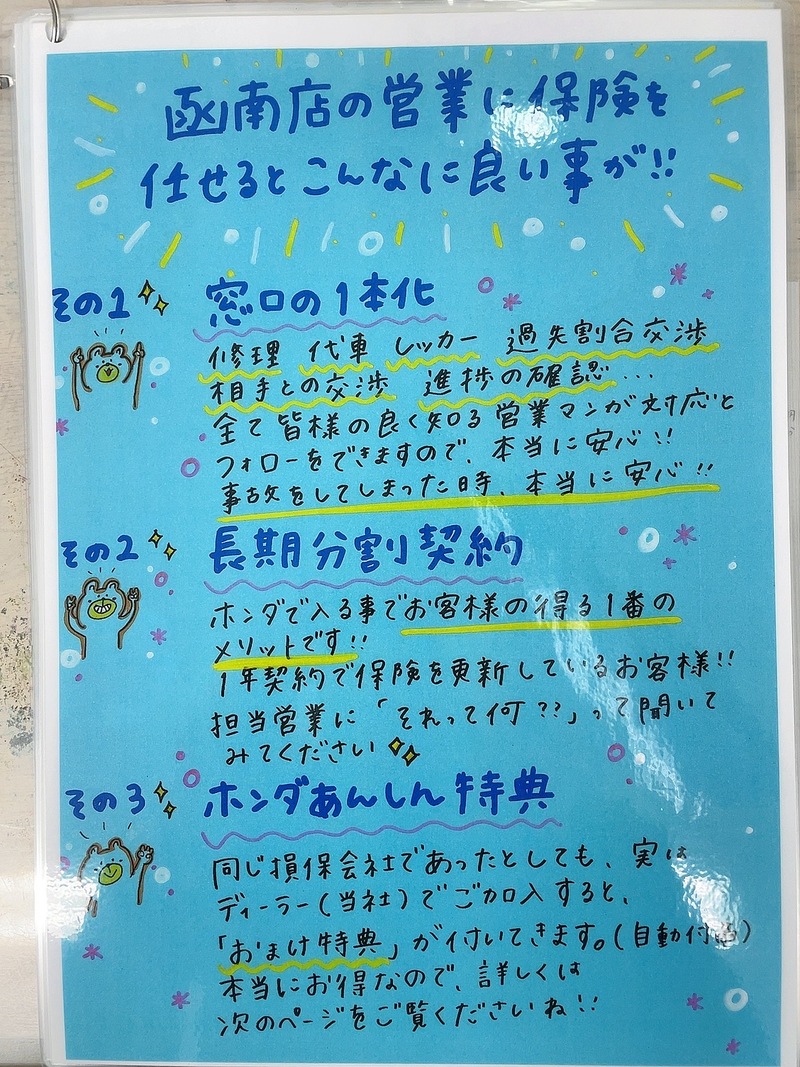 函南店の営業に保険を
任せるとこんなに良い事が!!
その1
窓口の1本化
修理 代車 レッカー 過失割合交渉
相手との交渉 進捗の確認...
全て皆様の良く知る営業マンが対応と
フォローをできますので、本当に安心!!
事故をしてしまった時、本当に安心!!
その2
長期分割契約
ホンダで入る事でお客様の得る1番の
メリットです!!
1年契約で保険を更新しているお客様!!
担当営業に「それって何??」って聞いて
みてください
その3
ホンダあんしん特典
同じ損保会社であったとしても、実は
ディーラー(当社)でご加入すると、
「おまけ特典」が付いてきます。(自動付帯)
本当にお得なので、詳しくは
次のページをご覧くださいね!!